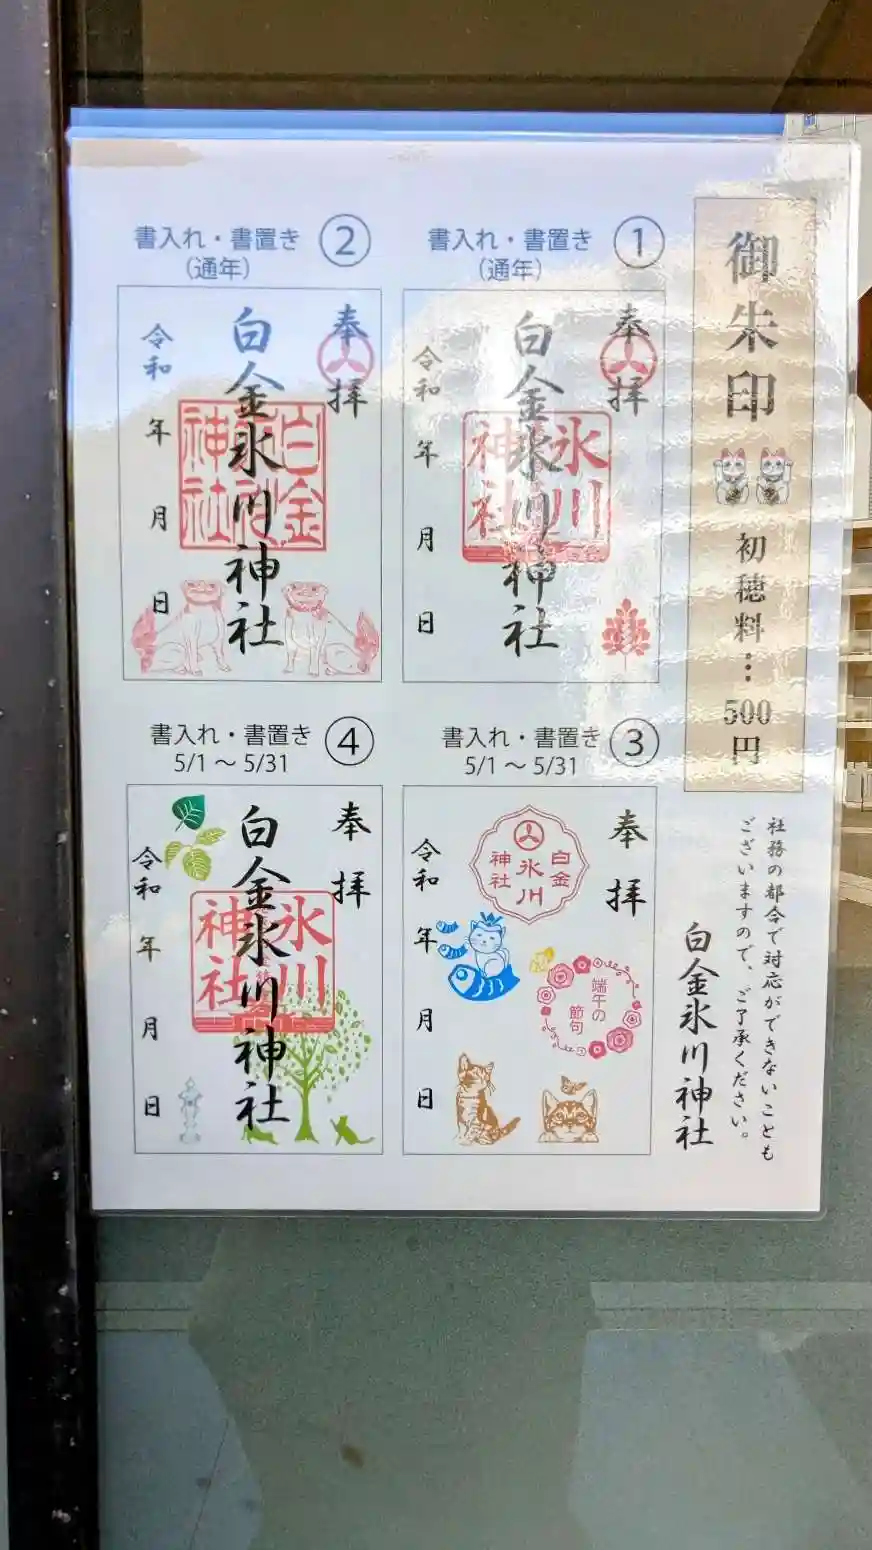 御朱印
初穂料…500円
社務の都合で対応ができないことも
ございますので、ご了承ください。
白金氷川神社
①
書入れ・書置き
（通年）
奉拝
白金氷川神社
氷川
神社
令和 年 月 日
②
書入れ・書置き
（通年）
奉拝
白金氷川神社
白金
神社
令和 年 月 日
③
書入れ・書置き
5/1～5/31
奉拝
白金
氷川
神社
端午の
節句
令和 年 月 日
④
書入れ・書置き
5/1～5/31
奉拝
白金氷川神社
氷川
神社
令和 年 月 日